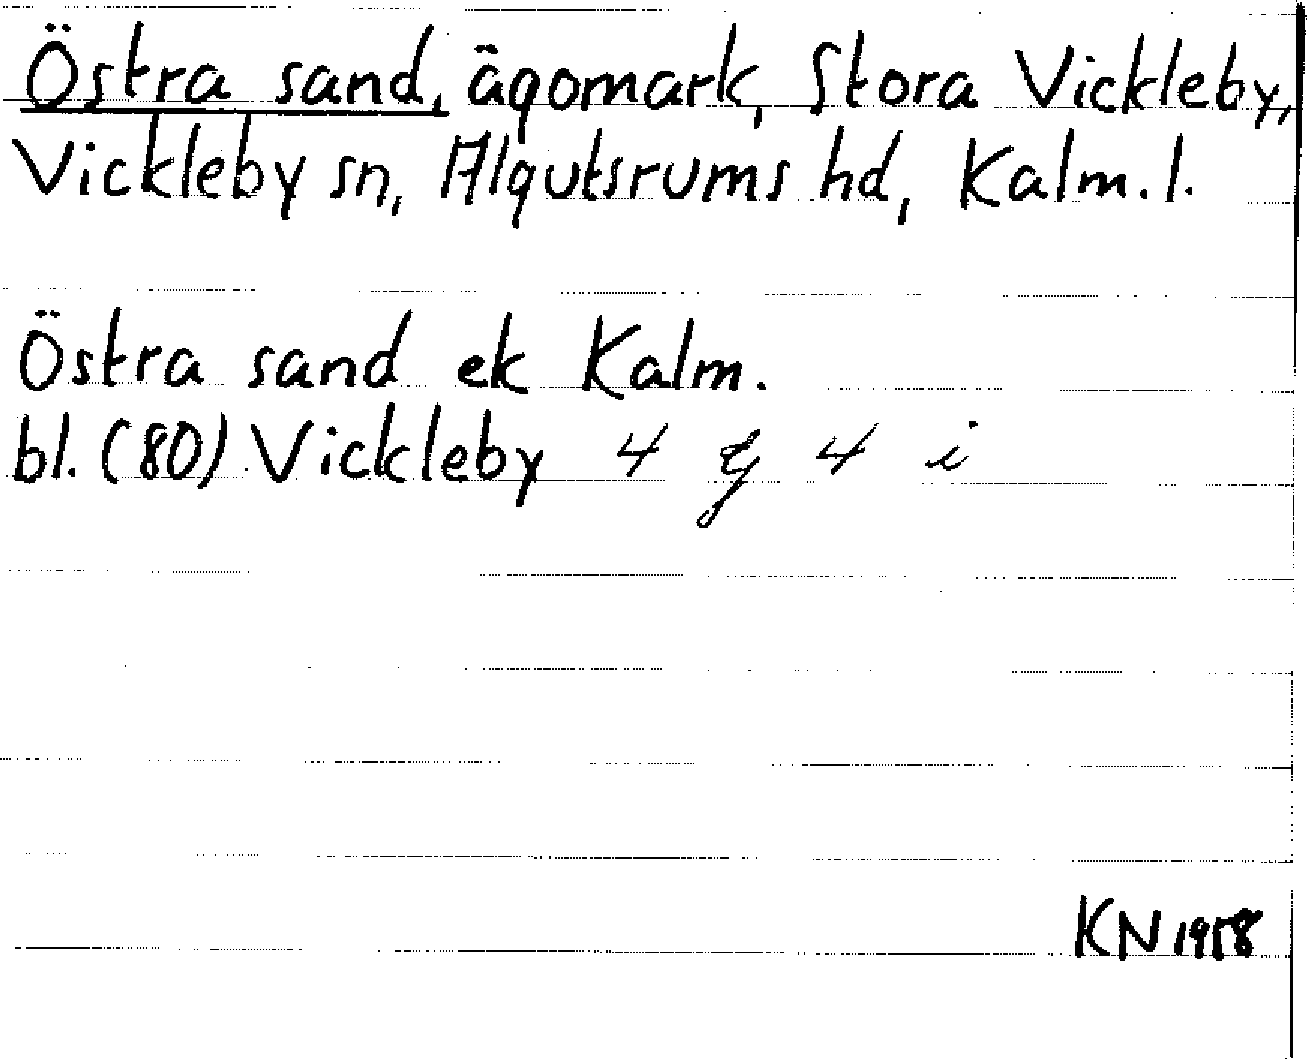 Östra sand, ägomark, Stora Vickleby,
Vickleby sn, Algutsrums hd, Kalm. l.
Östra sand ek Kalm.
bl. (80) Vickleby 4 g 4 i
KN 1958